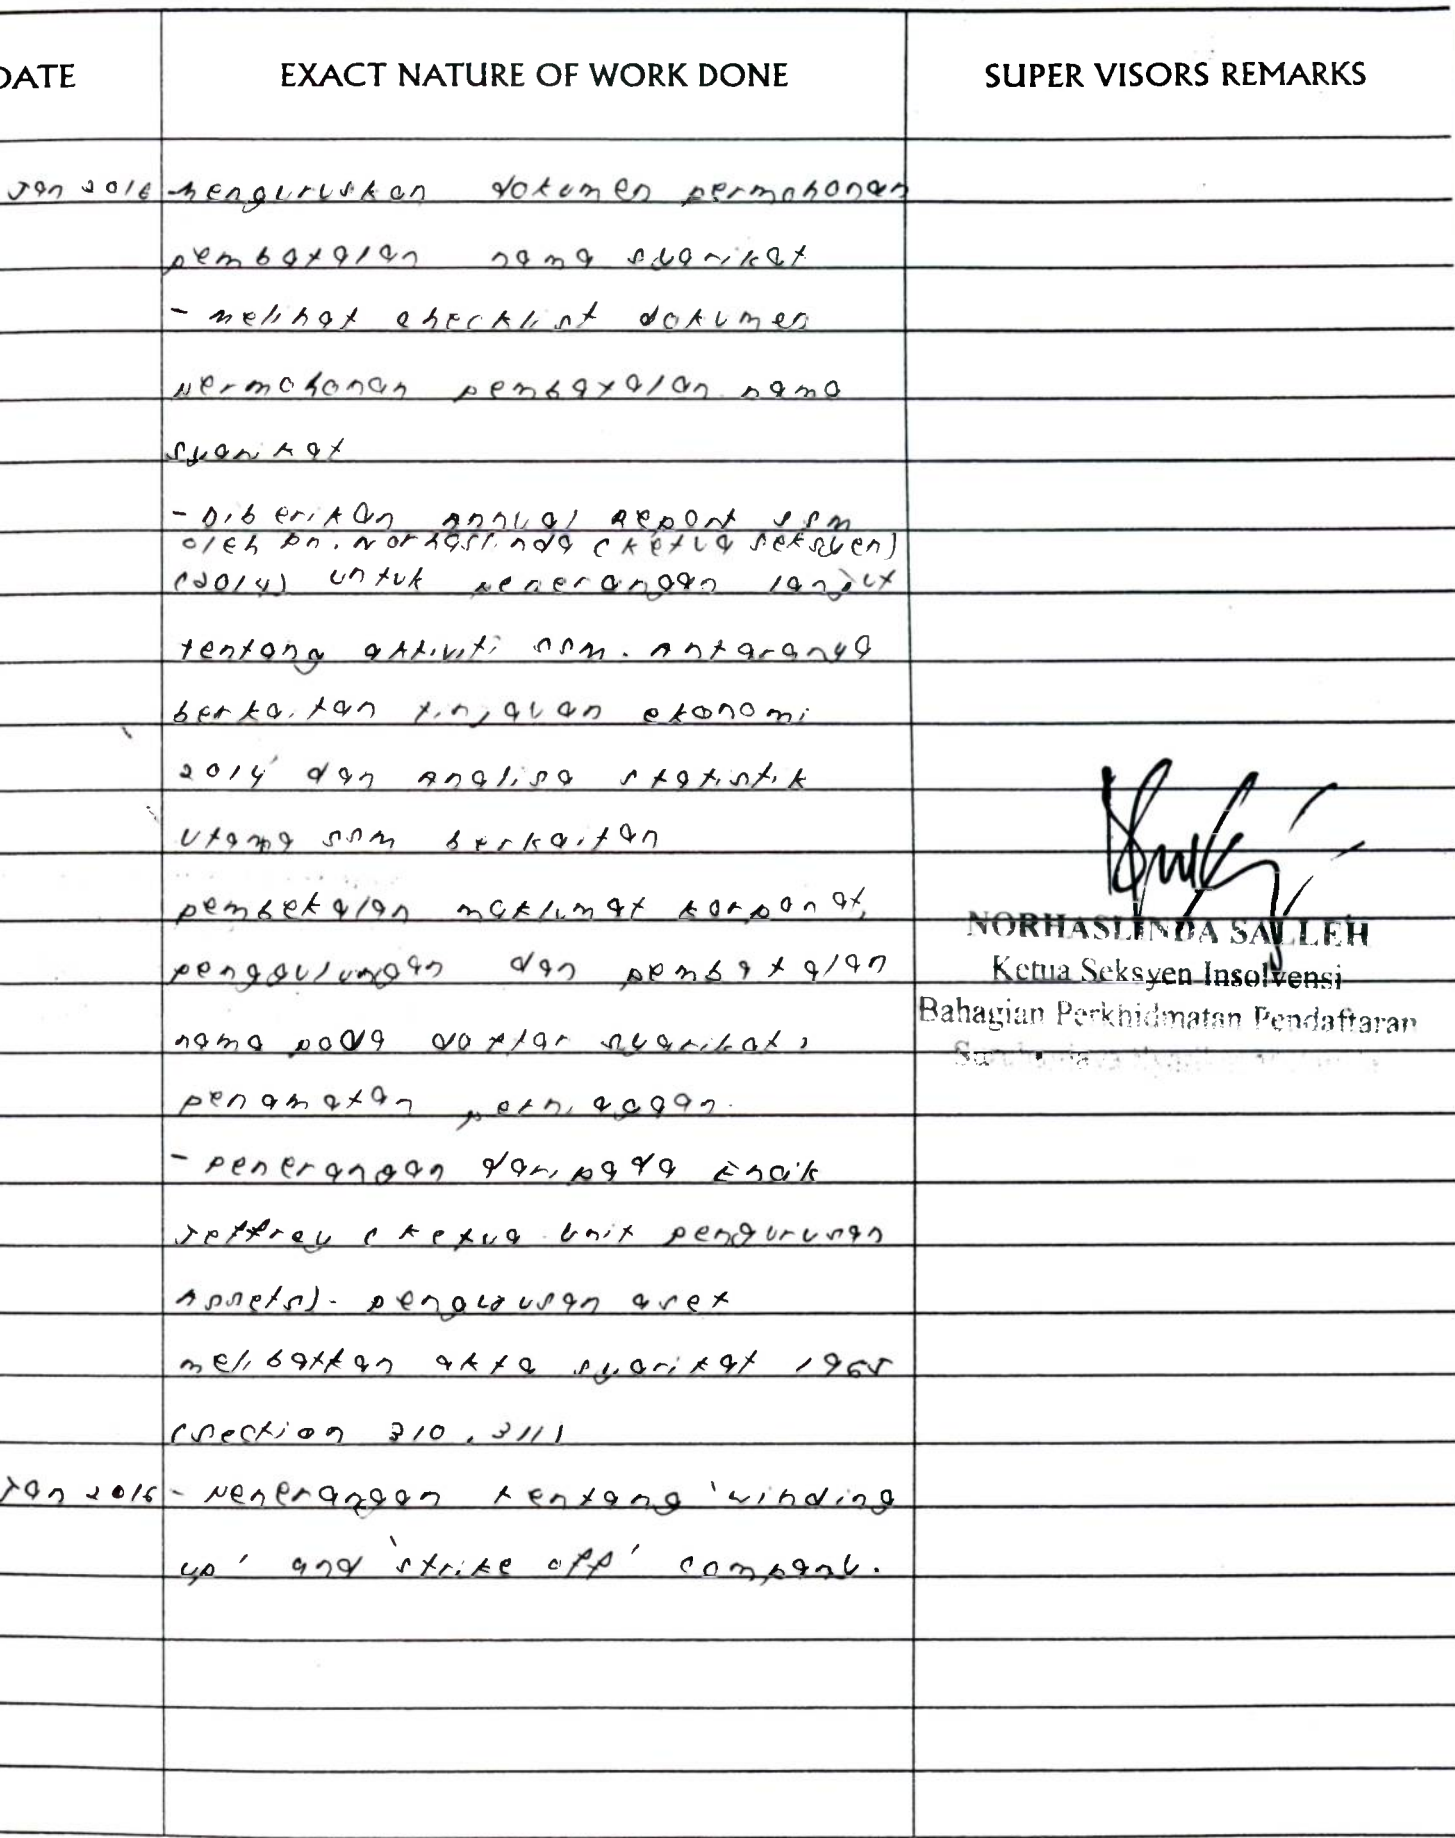 DATE EXACT NATURE OF WORK DONE SUPER VISORS REMARKS
Jan 2016 -Menguruskan dokumen permohonan
pembatalan nama syarikat
- melihat checklist dokumen
permohonan pembatalan nama
syarikat
- Diberikan Annual Report SSM
oleh Pn. Norhaslinda (Ketua Seksyen)
(2014) untuk penerangan lanjut
tentang aktiviti SSM. Antaranya
berkaitan tinjauan ekonomi
2014 dan Analisa statistik
utama SSM berkaitan
pembekalan maklumat korporat,
penggulungan dan pembatalan
nama pada daftar syarikat,
penamatan perniagaan.
- Penerangan daripada Encik
Jeffrey (Ketua Unit Pengurusan
Assets) - pengurusan aset
melibatkan akta syarikat 1965
(section 310, 311)
Jan 2016 - Penerangan tentang 'winding
up' and 'strike off' company.
NORHASLINDA SALLEH
Ketua Seksyen Insolvensi
Bahagian Perkhidmatan Pendaftaran